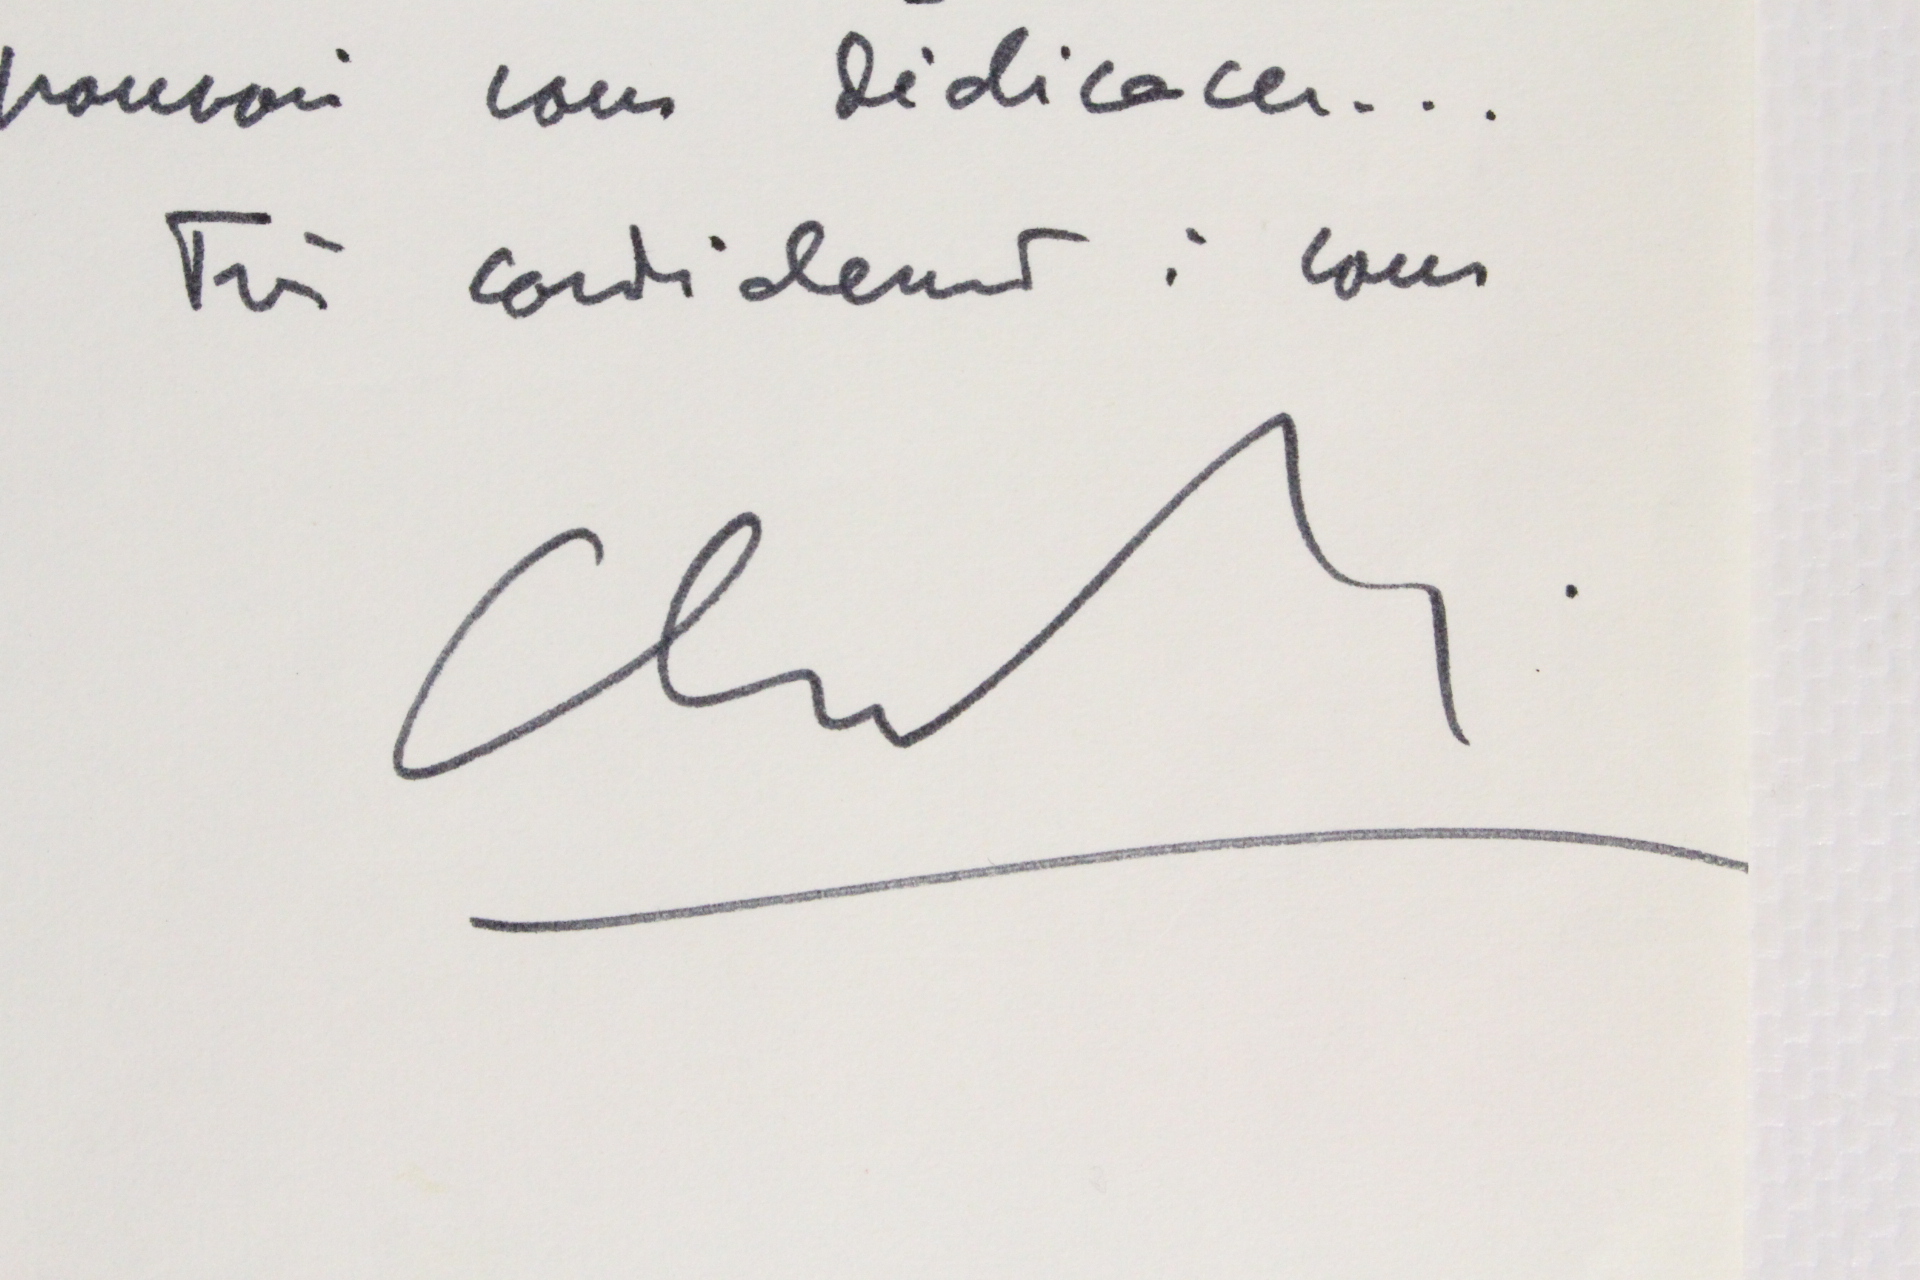 pouvoir vous dédicacer...
Très cordialement à vous